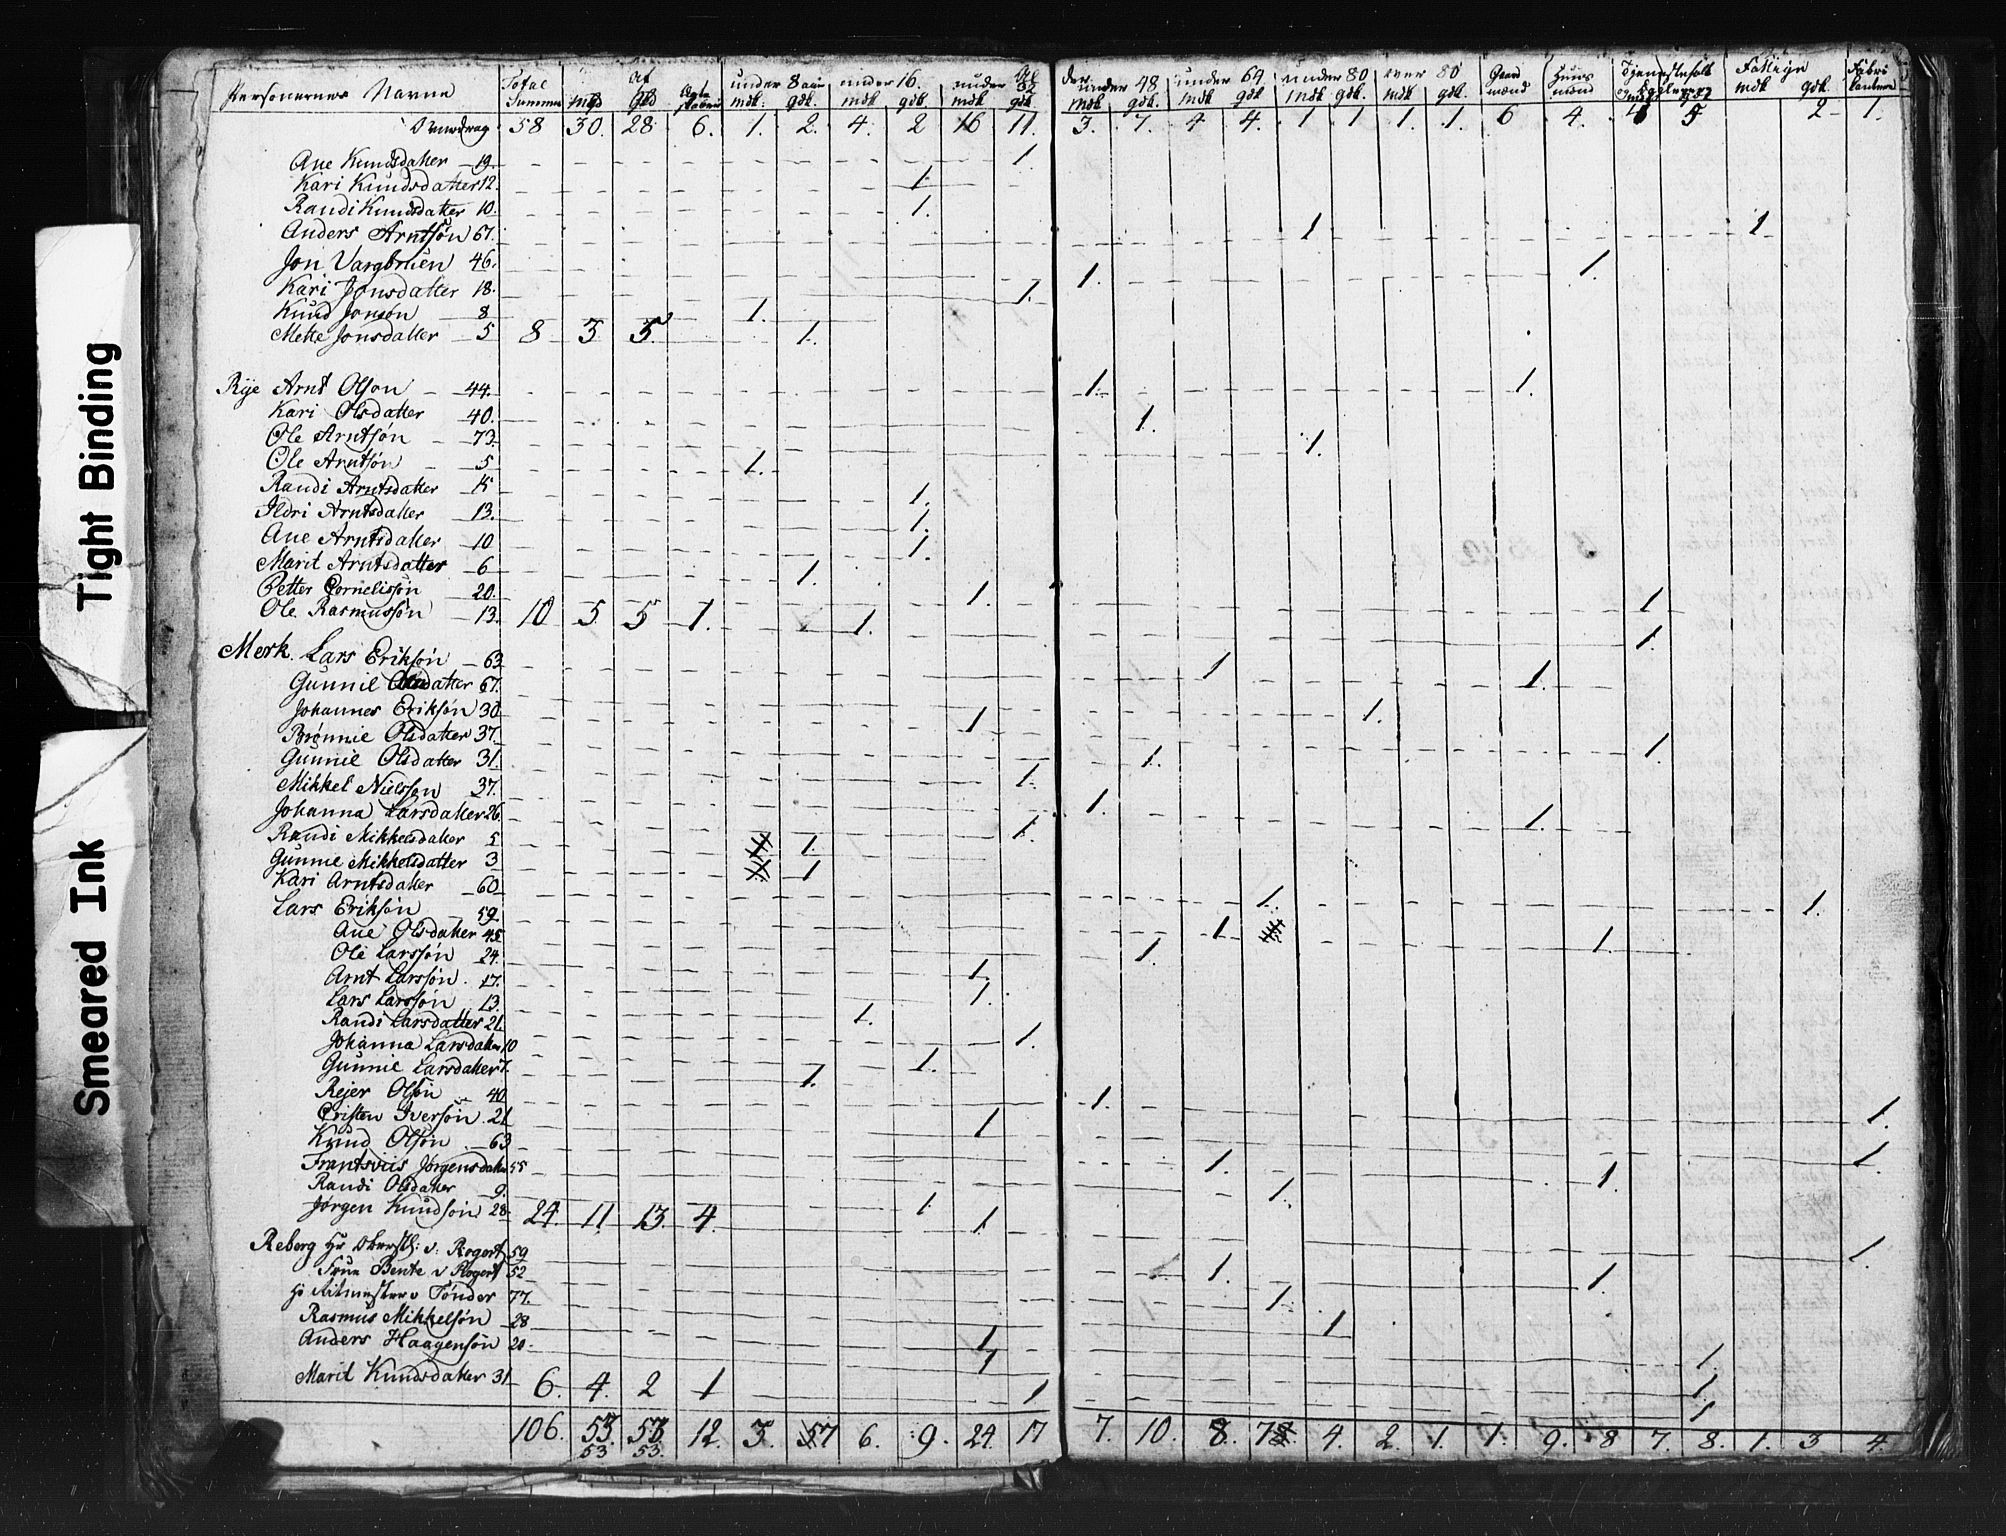 Personernes Navne Total Summa Af Mkd Qkd Ægte under 8 aar mdk: qdk. under 16. mdk qdk. under 32 mdk qdk under 48 mdk qdk. under 64 mdk qdk under 80 mdk qdk. over 80 mdk qdk. Gaard mænd Huus mænd Tjenestefolk Fattige mdk qdk.
58 30. 28 6. 1. 2. 4. 2 16 11. 3. 7. 4 4. 1 1 1. 1. 6 4. 4 5 2 1.
Ane Knudsdatter 19. 1
Kari Knudsdatter 12. 1.
Randi Knudsdatter 10. 1.
Anders Arntsøn 67. 1 1
Jon Vargbruen 46. 1. 1.
Kari Jonsdatter 18. 1.
Knud Jonsøn 8 1.
Mette Jonsdatter 5 8 3 5. 1.
Rye Arnt Olson 44. 1. 1.
Kari Olsdatter 40. 1.
Ole Arntsøn 73. 1.
Ole Arntsøn 5 1.
Randi Arntsdatter 15 1.
Ildri Arntsdatter 13. 1.
Ane Arntsdatter 10 1.
Marit Arntsdatter 6 1.
Petter Cornelissøn 20. 1. 1
Ole Rasmussøn 13. 10 5 5 1. 1. 1.
Merk. Lars Eriksøn 63 1 1.
Gunnil Olsdatter 67. 1.
Johannes Eriksøn 30 1 1.
Brønnie Olsdatter 37. 1.
Gunnil Olsdatter 31. 1.
Mikkel Nielsson 37. 1. 1.
Johanna Larsdatter 26. 1.
Randi Mikkelsdatter 5 1.
Gunnie Mikkelsdatter 3 1
Kari Arntsdatter 60 1. 1.
Lars Eriksøn 59 1 1.
Ane Olsdatter 45 1.
Ole Larssøn 24. 1.
Arnt Larssøn 17. 1.
Lars Larssøn 13. 1.
Randi Larsdatter 21 1.
Johanna Larsdatter 10 1.
Gunnie Larsdatter 7. 1.
Rejer Olsøn 40 1. 1.
Cristen Iversøn 21 1 1.
Knud Olsøn 63 1. 1.
Frantsviis Jørgensdatter 55 1.
Randi Olsdatter 9. 1
Jørgen Knudsøn 28. 24. 11 13. 4. 1 1.
Reberg Hr Oberstl: v: Rogert 59 1. 1.
Frue Bente v Rogert 52 1.
Hr Ritmester v Tønder 77. 1
Rasmus Mikkelsøn 28 1 1.
Anders Haagensøn 20. 1 1.
Marit Knudsdatter 31 6. 4. 2 1 1 1
106. 53. 53 12. 3. 7 6. 9. 24. 17 7. 10. 8. 7 4. 2. 1. 1. 9. 8 7. 8. 1. 3 4.
53 53.
Tight Binding
Smeared Ink